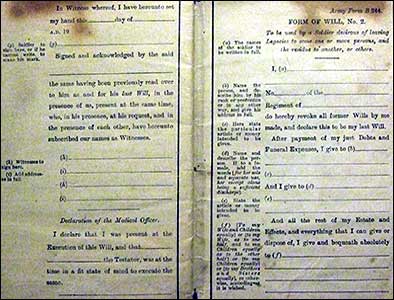 In Witness whereof, I have hereunto set
my hand this day of
A.D. 19
(g) Soldier to
sign here, or if he
cannot write, to
make his mark.
(g)
Signed and acknowledged by the said
the same having been previously read over
to him as and for his last Will, in the
presence of us, present at the same time,
who, in his presence, at his request, and in
the presence of each other, have hereunto
subscribed our names as Witnesses.
(h) Witnesses to
sign here.
(i) Add address
in full.
(h)
(i)
(h)
(i)
Declaration of the Medical Officer.
I declare that I was present at the
Execution of this Will, and that
the Testator, was at the
time in a fit state of mind to execute the
same.
Army Form B 244.
FORM OF WILL, No. 2.
To be used by a Soldier desirous of leaving
Legacies to some one or more persons, and
the residue to another, or others.
(a) The names
of the soldier to
be written in full.
I, (a)
No. of the
Regiment of
do hereby revoke all former Wills by me
made, and declare this to be my last Will.
After payment of my just Debts and
Funeral Expenses, I give to (b)
(c)
And I give to (d)
(e)
And all the rest of my Estate and
Effects, and everything that I can give or
dispose of, I give and bequeath absolutely
to (f)
(b) Name the
person, and de-
scribe him by his
rank or profession
or in any other
way, and give his
address in full.
(c) Here state
the particular
article or money
intended to be
given.
(d) Name and
describe the per-
son. If to a
female, add the
words (for her sole
and separate use,
her receipt alone
being a sufficient
discharge).
(e) State the
article or money
intended to be
given.
(f) (To my
Wife and Children
equally)